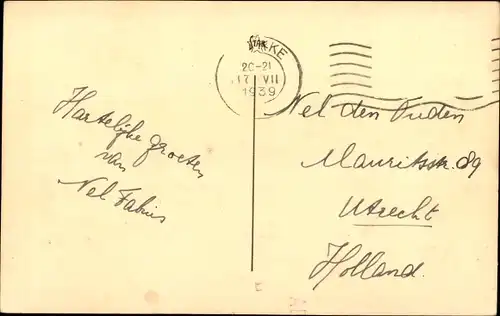 KKE
20-21
17 VII
1939
Hartelijke groeten
van
Nel Fabius
Nel den Ouden
Mauritsstr. 89
Utrecht
Holland.